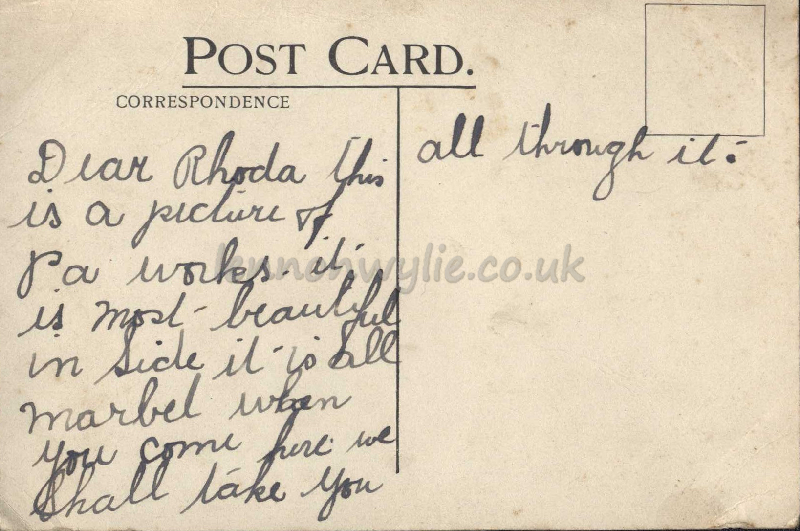 POST CARD.
CORRESPONDENCE
Dear Rhoda this
is a picture of
Pa works. it
is most beautiful
in side it is all
marbel when
you come here we
Shall take you
all through it.
lennonwylie.co.uk